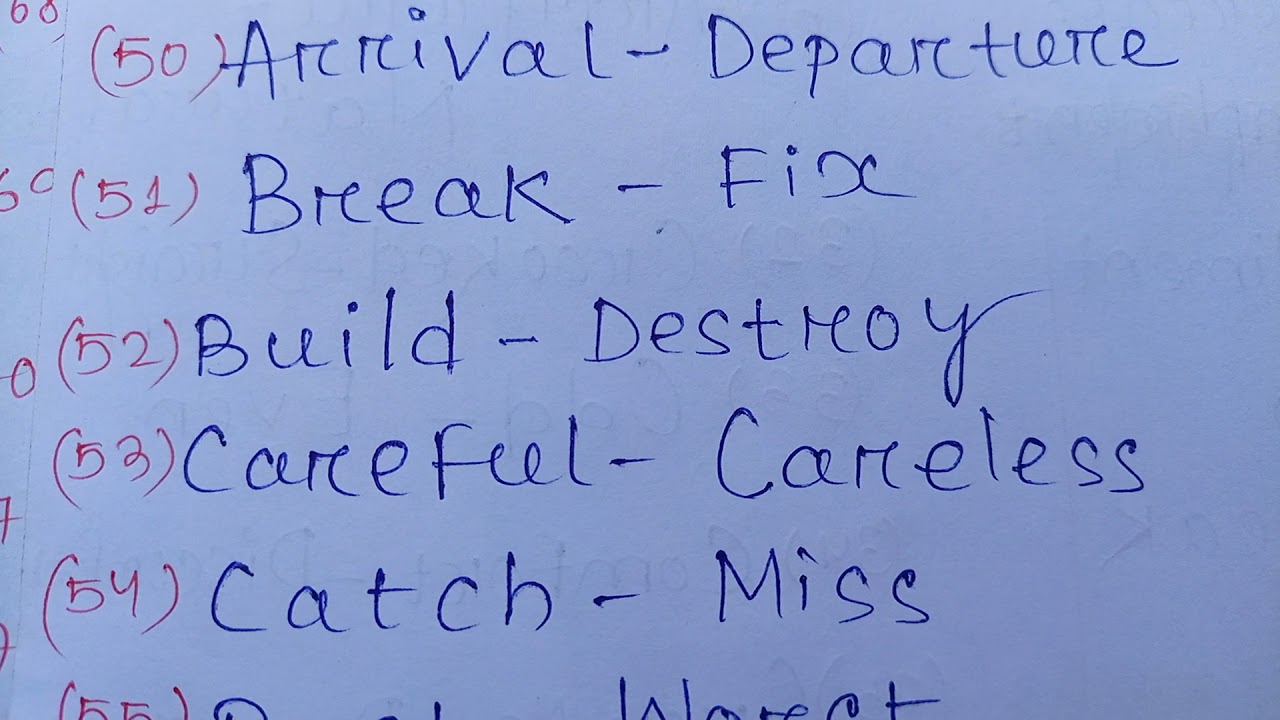 (50) Arrival - Departure
(51) Break - Fix
(52) Build - Destroy
(53) Careful - Careless
(54) Catch - Miss
(55)